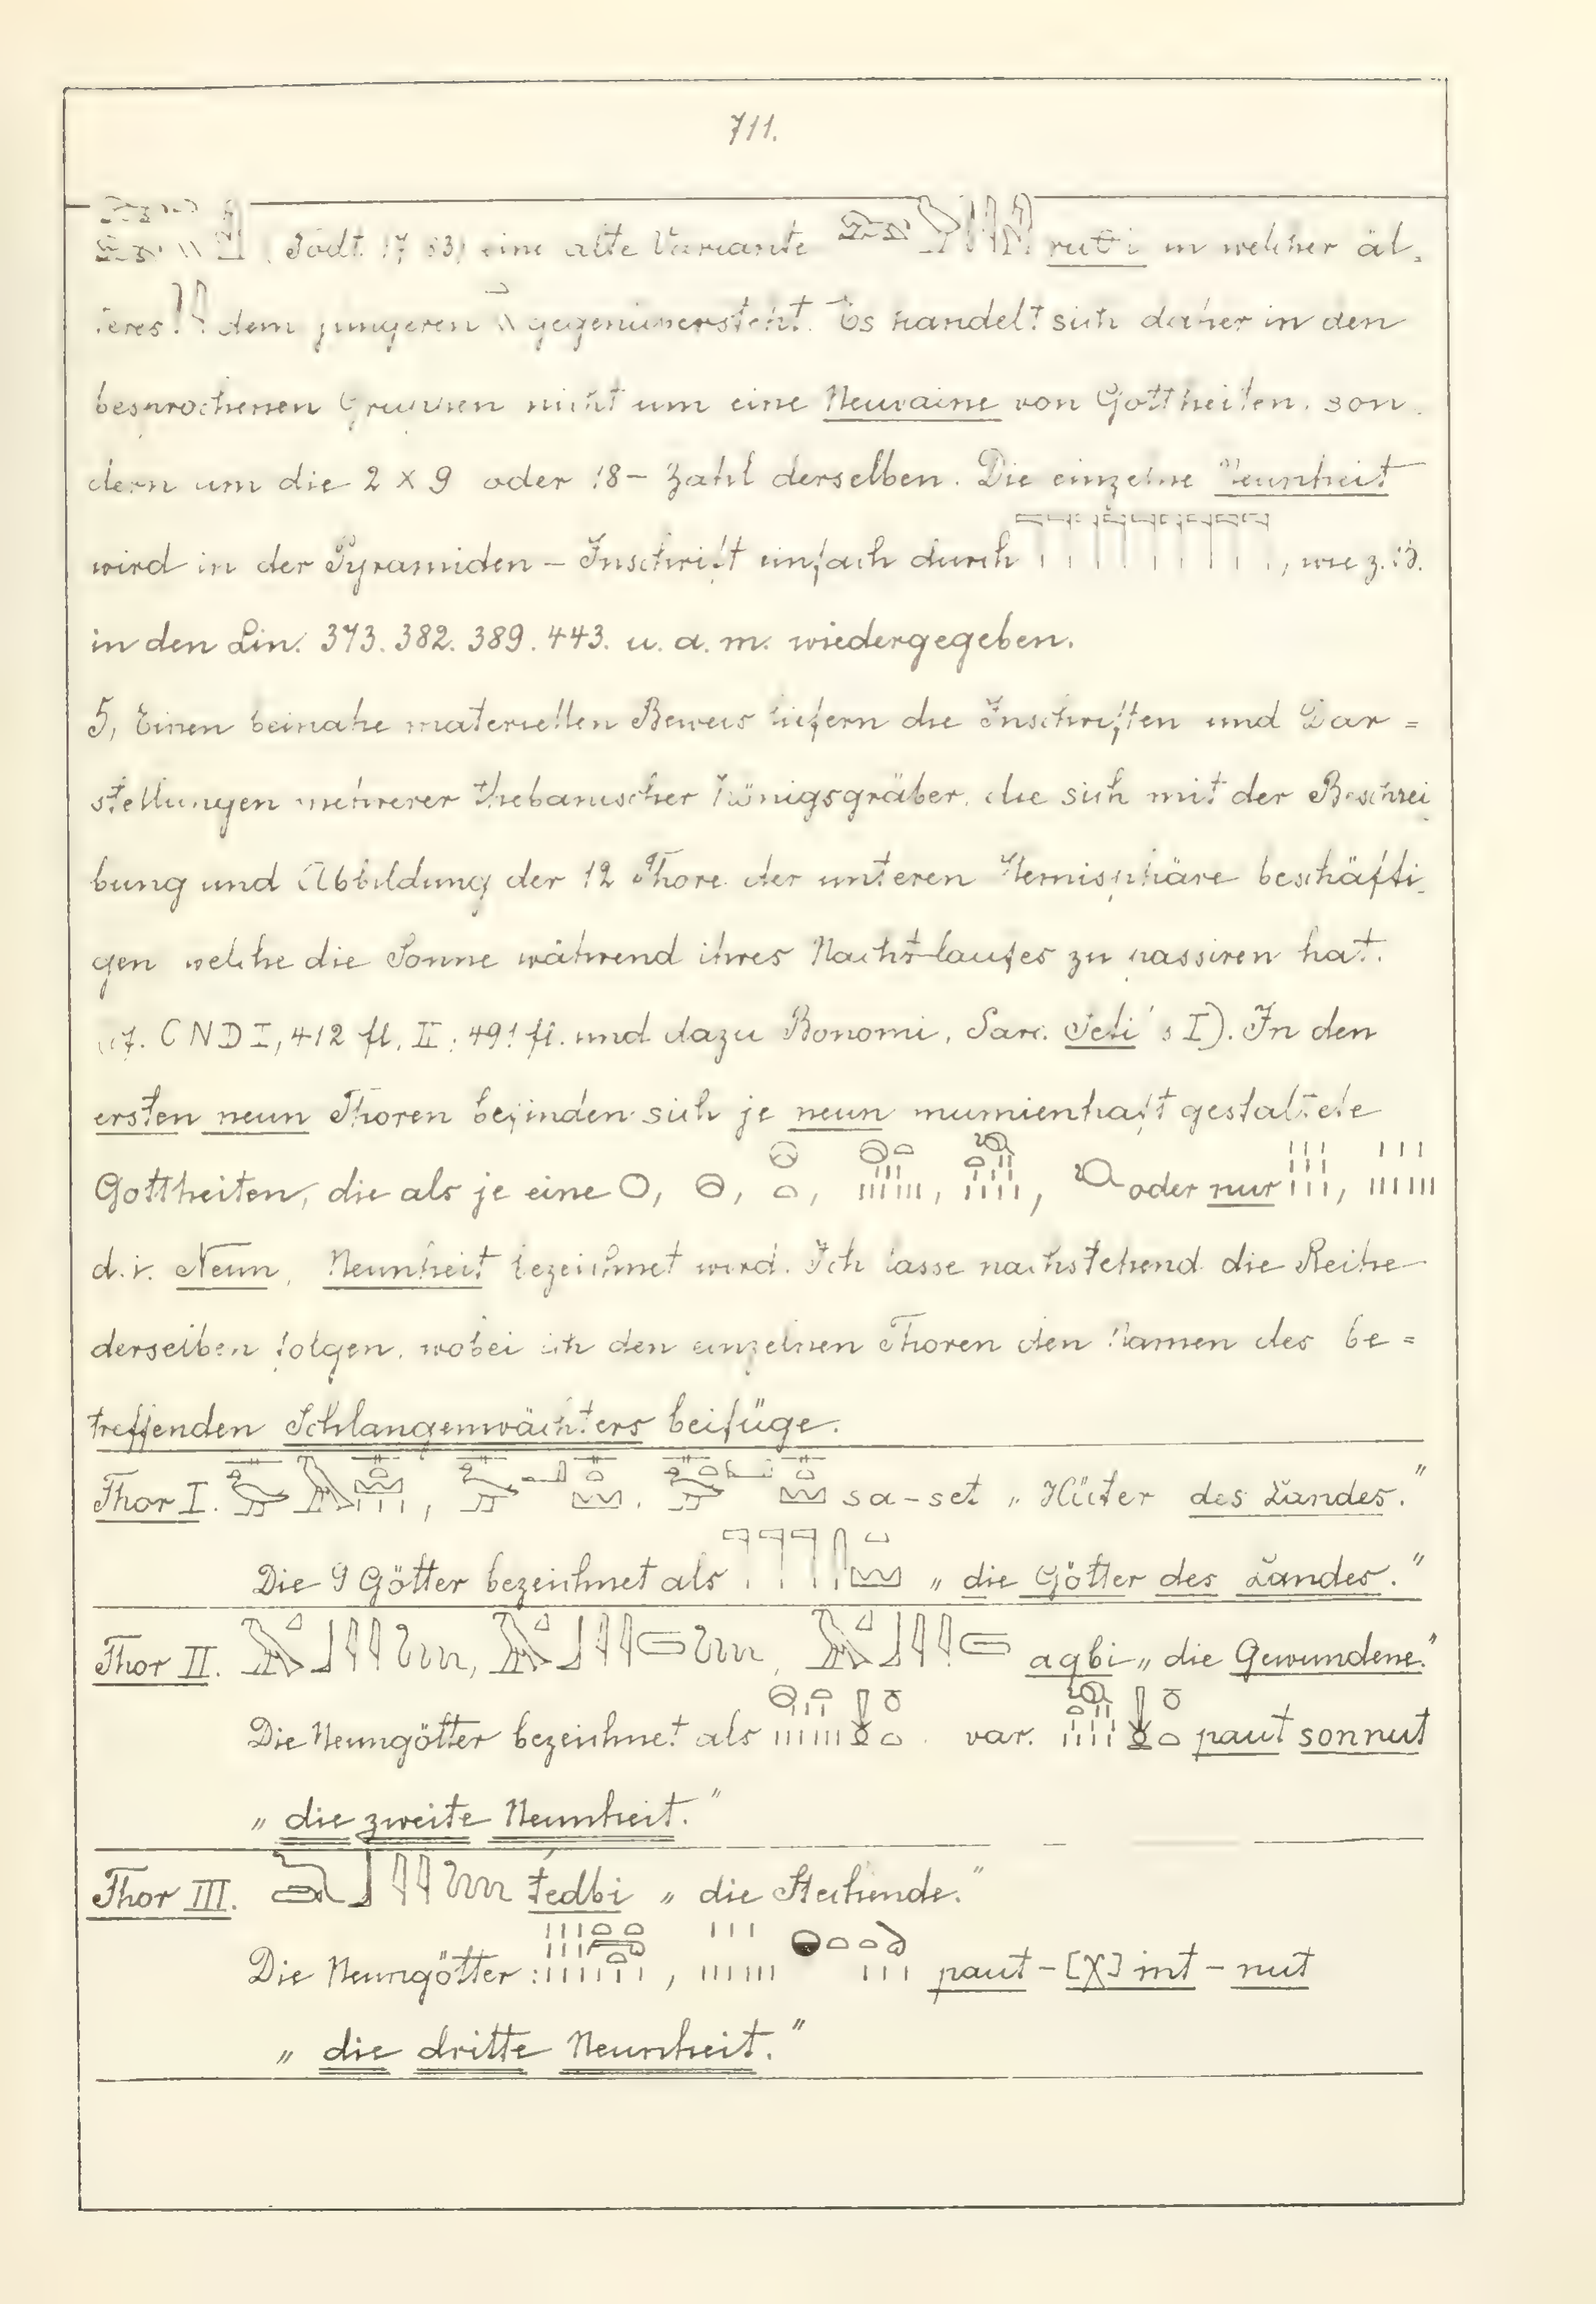 711.
(Todt. 17, 53) eine alte Variante ruti in welcher äl-
teres dem jüngeren gegenübersteht. Es handelt sich daher in den
besprochenen Gruppen nicht um eine Neuvaine von Gottheiten, son-
dern um die 2 x 9 oder 18- Zahl derselben. Die einzelne Neunheit
wird in der Pyramiden - Inschrift einfach durch , wie z. B.
in den Lin. 373. 382. 389. 443. u. a. m. wiedergegeben.
5, Einen beinahe materiellen Beweis liefern die Inschriften und Dar =
stellungen mehrerer thebanischer Königsgräber, die sich mit der Beschrei
bung und Abbildung der 12 Thore der unteren Hemisphäre beschäfti-
gen welche die Sonne während ihres Nacht-laufes zu passiren hat.
CND I, 412 fl. II, 491 fl. und dazu Bonomi, Sarc. Seti's I). In den
ersten neun Thoren befinden sich je neun mumienhaft gestaltete
Gottheiten, die als je eine , , , , , oder nur ,
d. i. Neun, Neunheit bezeichnet wird. Ich lasse nachstehend die Reihe
derselben folgen, wobei ich den einzelnen Thoren den Namen des be =
treffenden Schlangenwächters beifüge.
Thor I. , , sa-set „ Hüter des Landes.“
Die 9 Götter bezeichnet als „ die Götter des Landes.“
Thor II. , , aqbi „ die Gewundene.“
Die Neungötter bezeichnet als . var. paut sonnut
„ die zweite Neunheit.“
Thor III. tedbi „ die Stechende.“
Die Neungötter : , paut - [χ] mt - nut
„ die dritte Neunheit.“